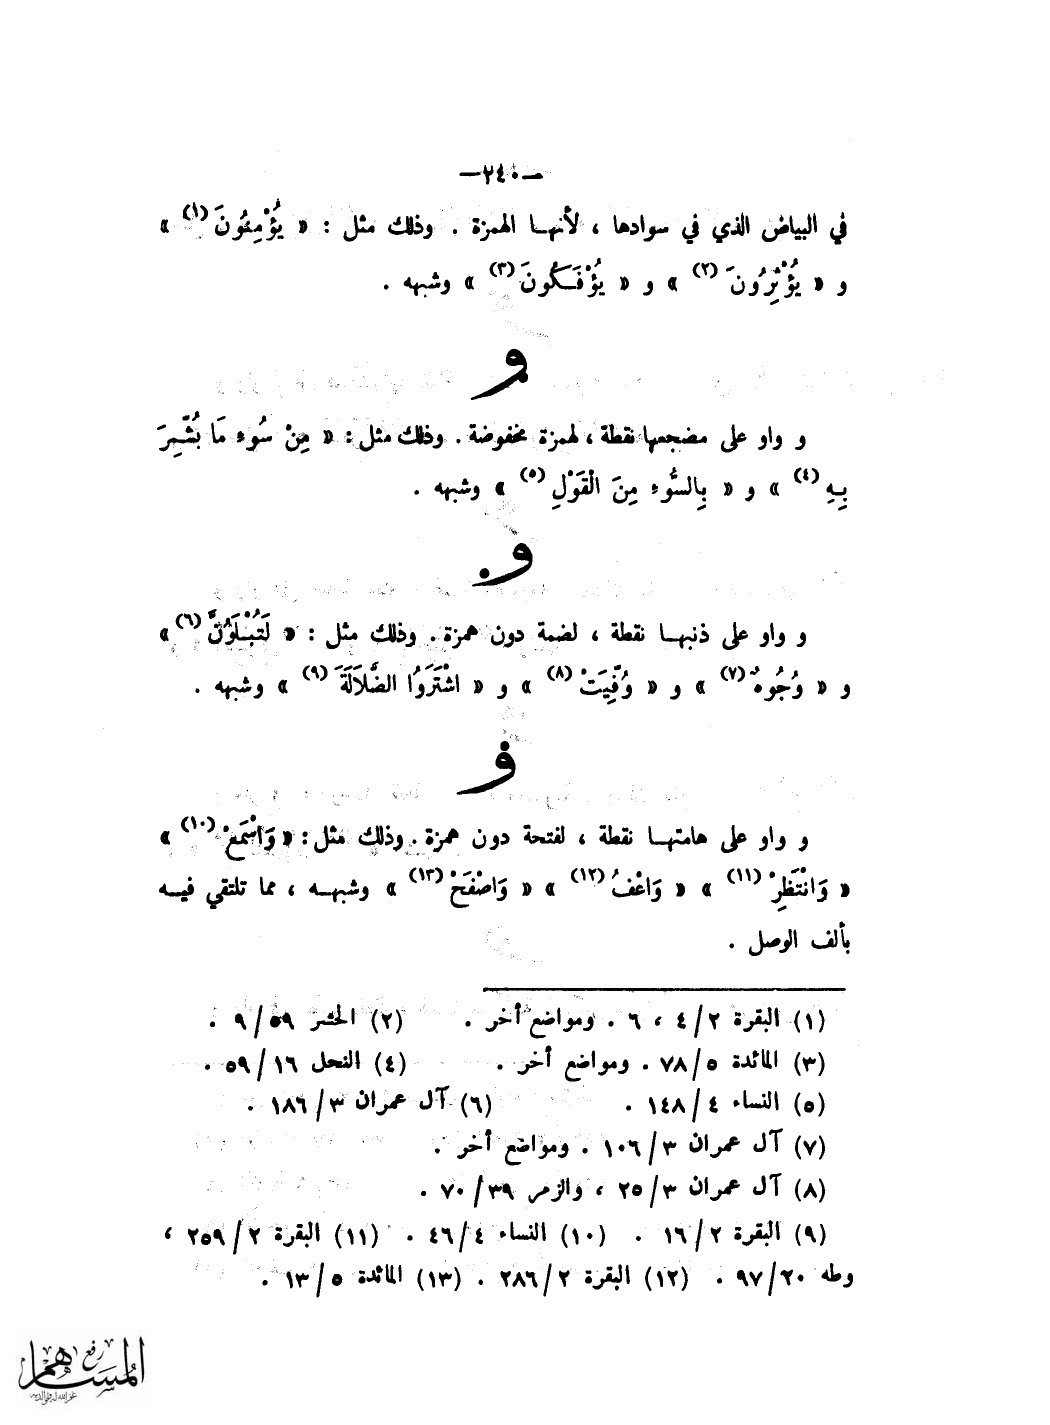 —٢٤٠—
في البياض الذي في سوادها ، لأنهـا الهمزة . وذلك مثل : « يُؤْمِنُونَ (١) »
و « يُؤْثِرُونَ (٢) » و « يُؤْفَـكُونَ (٣) » وشبهه .
و
و واو على مضجعها نقطة ، لهمزة مخفوضة . وذلك مثل : « مِنْ سُوءِ مَا بُشِّرَ
بِـهِ (٤) » و « بِالسُّوءِ مِنَ الْقَوْلِ (٥) » وشبهه .
و
و واو على ذنبهـا نقطة ، لضمة دون همزة . وذلك مثل : « لَتُبْلَوُنَّ (٦) »
و « وُجُوهٌ (٧) » و « وُفِّيَتْ (٨) » و « اشْتَرَوُا الضَّلاَلَةَ (٩) » وشبهه .
و
و واو على هامتهـا نقطة ، لفتحة دون همزة . وذلك مثل : « وَاسْمَعْ (١٠) »
« وَانْتَظِرْ (١١) » « وَاعْفُ (١٢) » « وَاصْفَحْ (١٣) » وشبهـه ، مما تلتقي فيـه
بألف الوصل .
(١) البقرة ٢/ ٤ ، ٦ . ومواضع أخر . (٢) الحشر ٥٩/ ٩ .
(٣) المائدة ٥/ ٧٨ . ومواضع أخر . (٤) النحل ١٦/ ٥٩ .
(٥) النساء ٤/ ١٤٨ . (٦) آل عمران ٣/ ١٨٦ .
(٧) آل عمران ٣/ ١٠٦ . ومواضع أخر .
(٨) آل عمران ٣/ ٢٥ ، والزمر ٣٩/ ٧٠ .
(٩) البقرة ٢/ ١٦ . (١٠) النساء ٤/ ٤٦ . (١١) البقرة ٢/ ٢٥٩ ،
وطه ٢٠/ ٩٧ . (١٢) البقرة ٢/ ٢٨٦ . (١٣) المائدة ٥/ ١٣ .
رفع
المساهم
غفر الله له ولوالديه